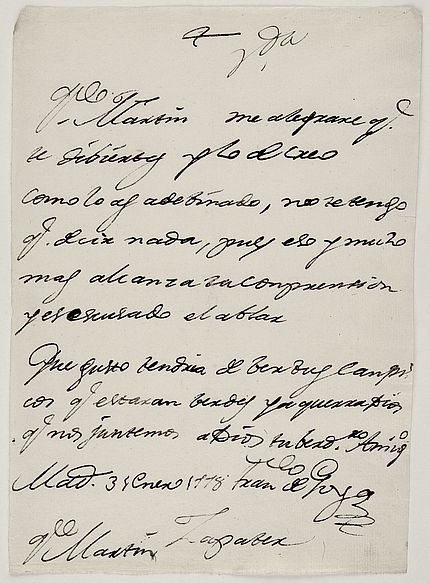 qdo Martin me alegrare q.e
te dibiertes y lo de creo
como lo as adebinado, no te tengo
q.e decir nada, pues eso y mucho
mas alcanza tu conprension
y es escusado el ablar
Que gusto tendria de ber tus canpi
cos q.e estaran berdes ya querra Dios
q.e nos juntemos a Dios tu berd.ro Amigo
Mad. 3 Enero 1778 Fran.co de Goya
q.do Martin Zapater